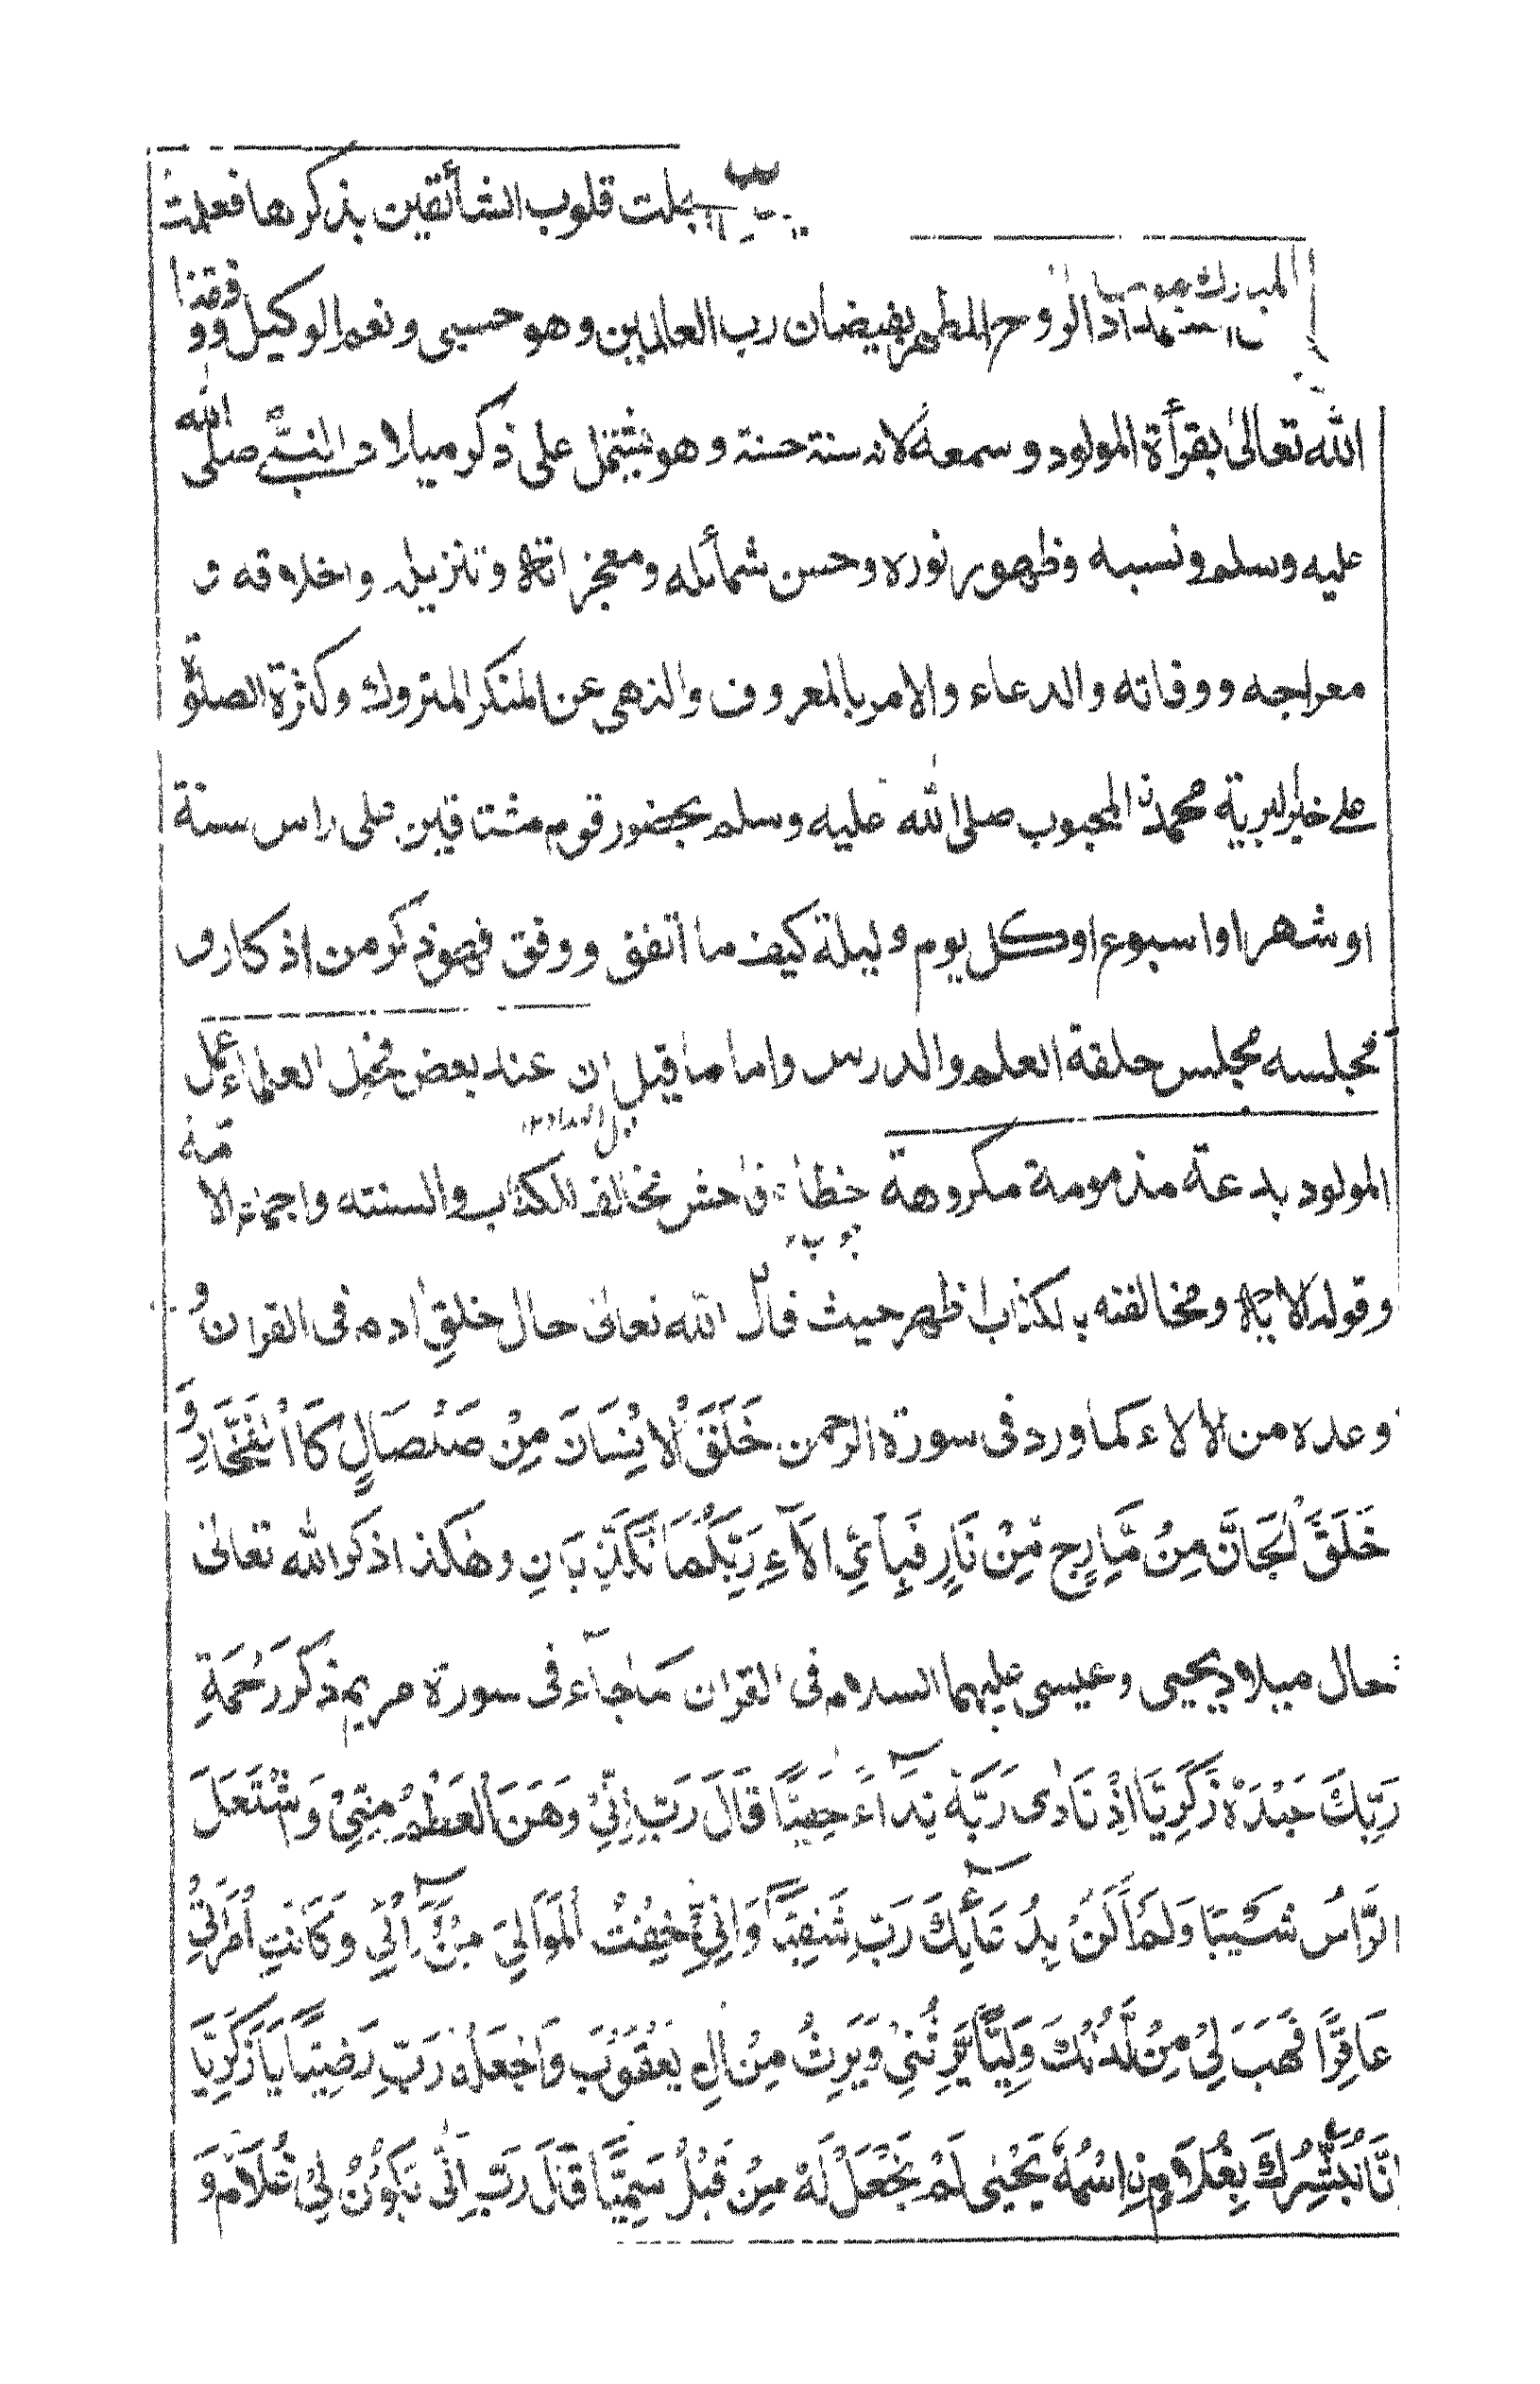 جلت قلوب الشأئقين بذكرها فعلمتُ
المبارك الروح المطهر بفيضان رب العالمين وهو حسبى ونعم الوكيل ووفقنا
الله تعالىٰ بقرأة المولود وسمعه لانه سنة حسنة وهو يشتمل على ذكر ميلاد النبى صلى الله
عليه وسلم ونسبه وظهور نوره وحسن شمأئله ومعجزاته وتنزيله واخلاقه و
معراجه ووفاته والدعاء والامر بالمعروف والنهى عن المنكر المتروك وكثرة الصلوٰة
على خير البرية محمدن المحبوب صلى الله عليه وسلم بحضور قوم مشتاقين على راس سنة
او شهر او اسبوع او كل يوم وليلة كيف ما اتفق ووفق فهو ذكر من اذكار و
مجلسه مجلس حلقة العلم والدرس واما ما قيل ان عند بعض العلماء عمل
المولود بدعة مذمومة مكروهة خطاء فاحش مخالف للكتاب والسنته واجماع الامة
وقوله لا ومخالفته بالكتاب اظهر حيث قال الله تعالىٰ حال خلق اٰدم فى القراٰن و
وعده من الالاء كما ورد فى سورة الرحمن خَلَقَ الْاِنْسَانَ مِنْ صَلْصَالٍ كَاالْفَخَّارِ وَ
خَلَقَ الْجَانَّ مِنْ مَّارِجٍ مِّنْ نَارٍ فَبِاَىِّ اٰلَآءِ رَبِّكُمَا تُكَذِّبَانِ وهٰكذا ذكر الله تعالىٰ
حال ميلاد يحيى وعيسى عليهما السلام فى القراٰن كما جاٰء فى سورة مريم ذكر رَحْمَةِ
رَبِّكَ عَبْدَهٗ زَكَرِيَّا اِذْ نَادٰى رَبَّهٗ نِدَآءً خَفِيًّا قَالَ رَبِّ اِنِّىْ وَهَنَ الْعَظْمُ مِنِّىْ وَشْتَعَلَ
الرَّاْسُ شَيْبًا وَلَمْ اَكُنْ بِدُعَآئِكَ رَبِّ شَقِيًّا وَاِنِّىْ خِفْتُ الْمَوَالِىَ مِنْ وَّرَآئِىْ وَكَانَتِ امْرَاَتِىْ
عَاقِرًا فَهَبْ لِىْ مِنْ لَّدُنْكَ وَلِيًّا يَّرِثُنِىْ وَيَرِثُ مِنْ اٰلِ يَعْقُوْبَ وَاجْعَلْهُ رَبِّ رَضِيًّا يَا زَكَرِيَّا
اِنَّا نُبَشِّرُكَ بِغُلَامِ نِ اسْمُهٗ يَحْيٰى لَمْ نَجْعَلْ لَهٗ مِنْ قَبْلُ سَمِيًّا قَالَ رَبِّ اَنّٰى يَكُوْنُ لِىْ غُلَامٌ وَ